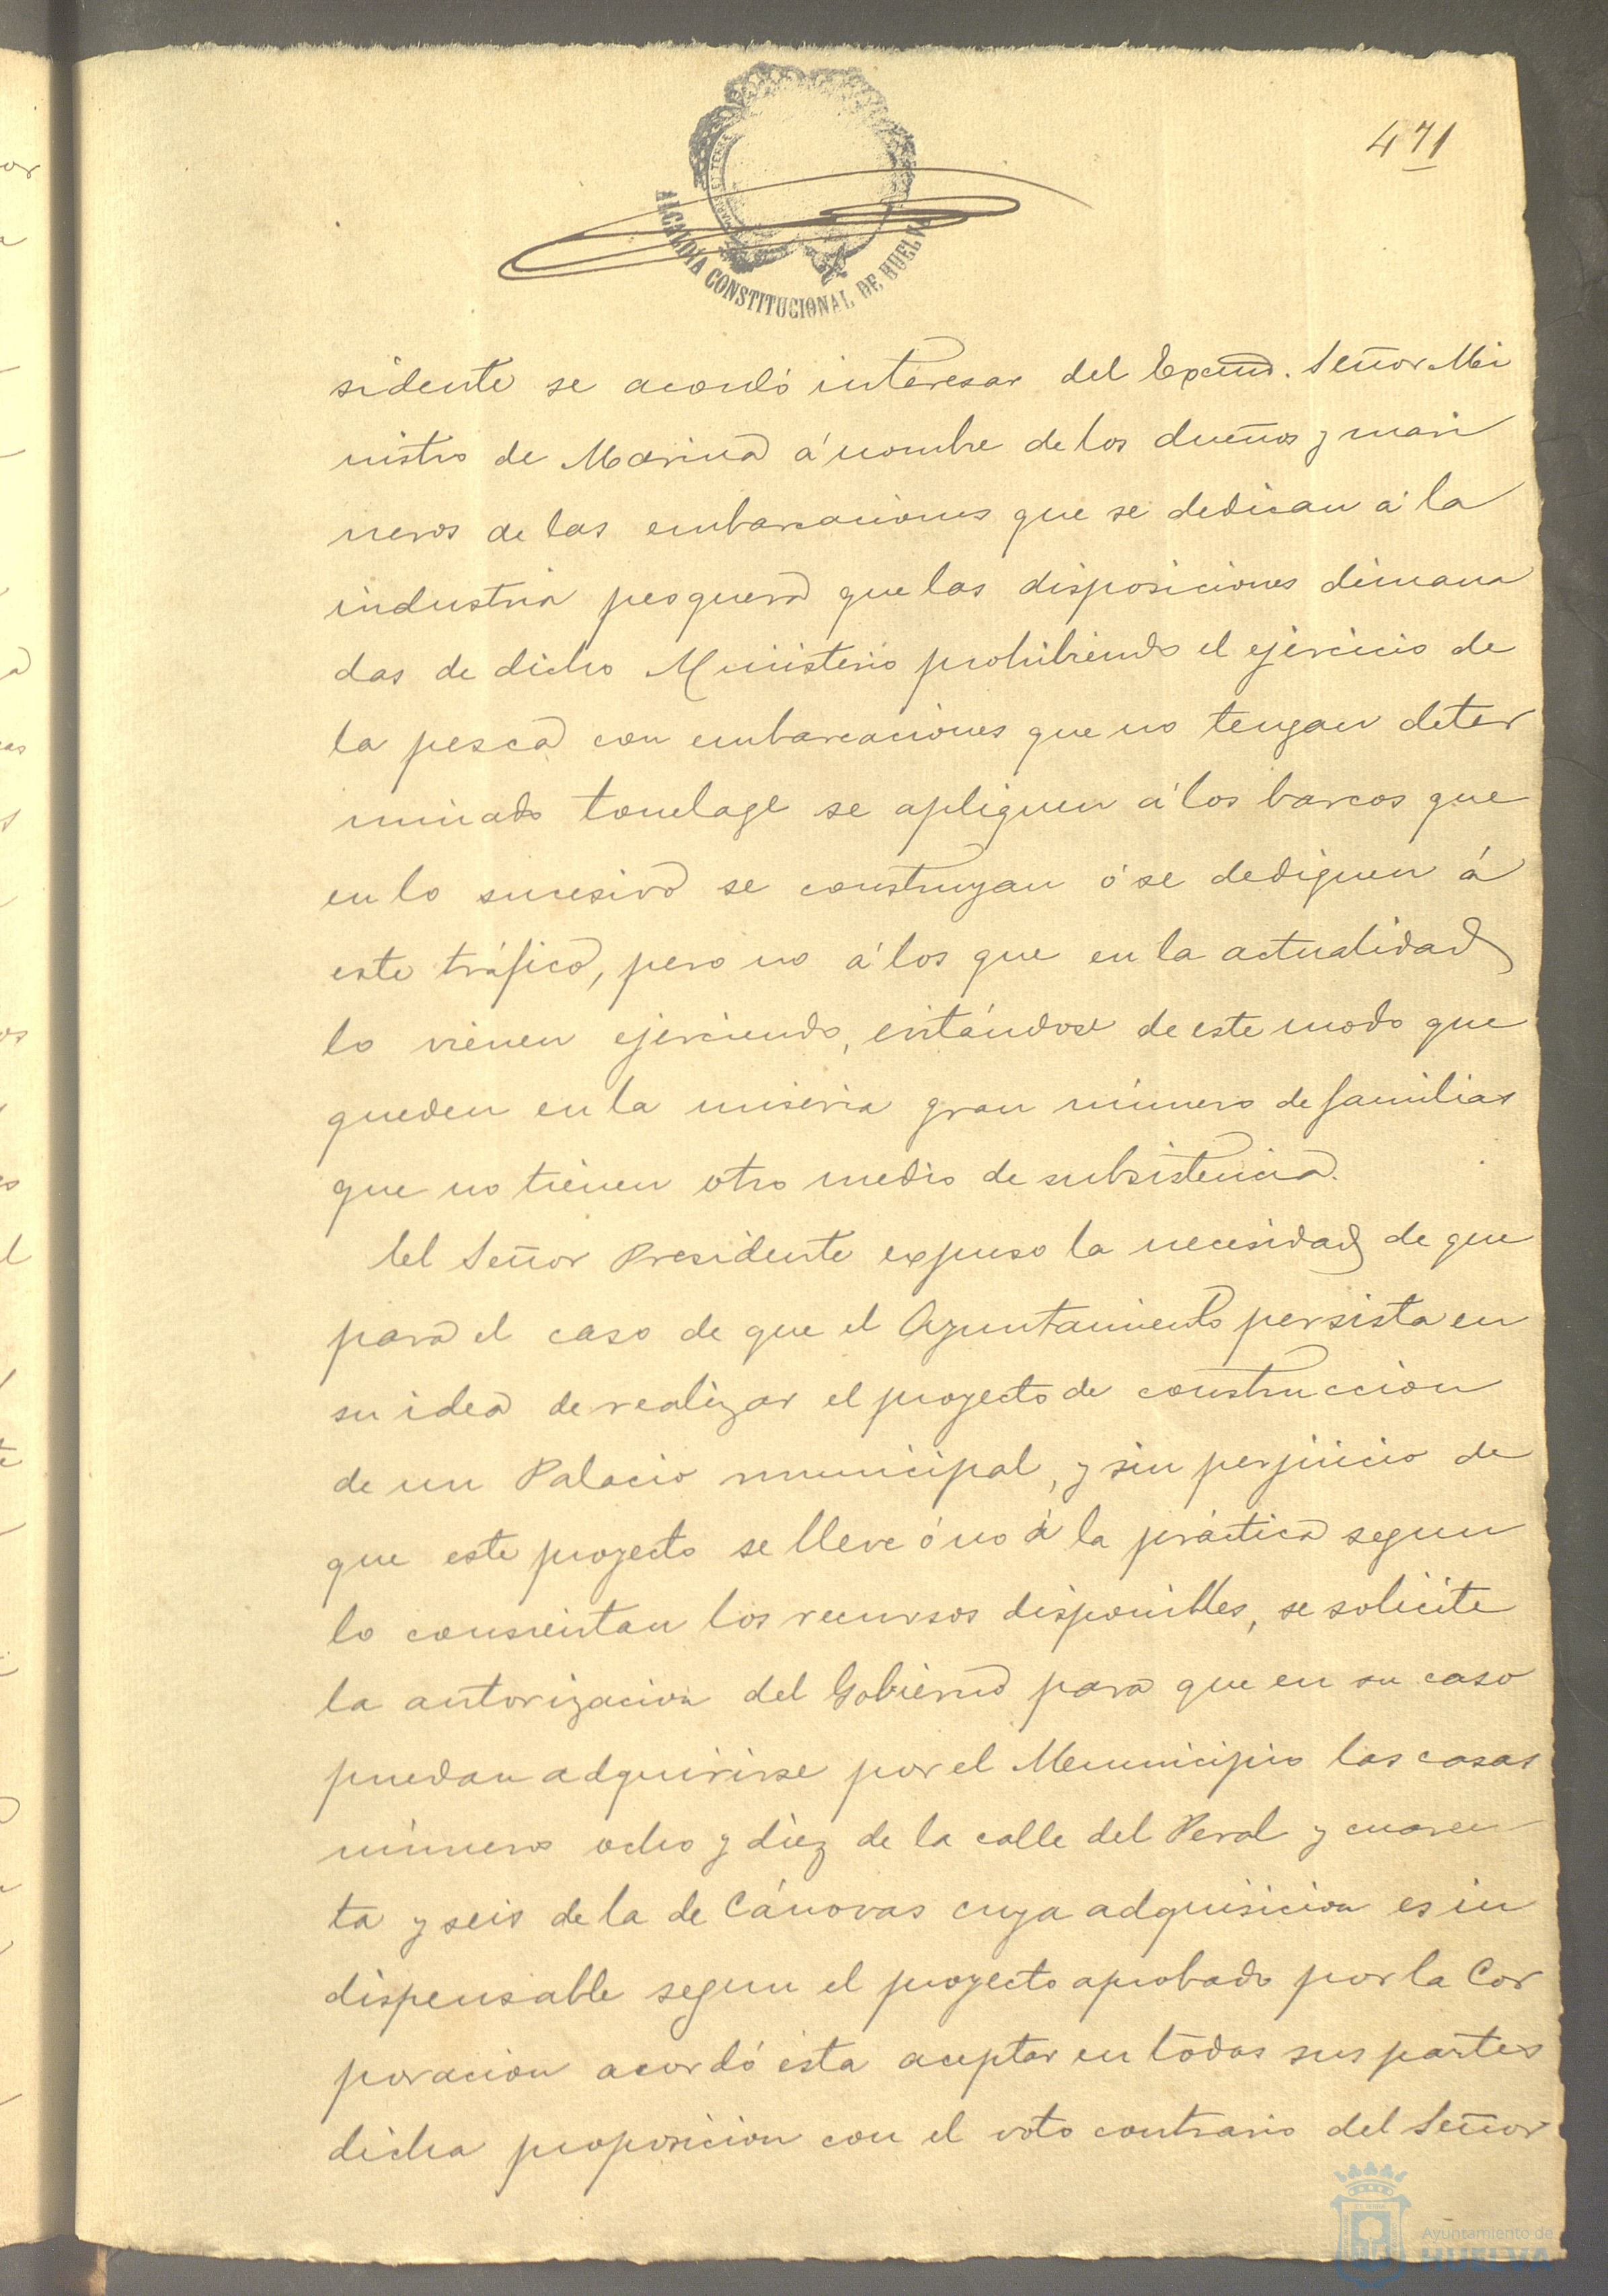 471
ALCALDÍA CONSTITUCIONAL DE HUELVA
sidente se acordó interesar del Excmo. Señor Mi
nistro de Marina á nombre de los dueños y mari
neros de las embarcaciones que se dedican á la
industria pesquera que las disposiciones dimana
das de dicho Ministerio prohibiendo el ejercicio de
la pesca con embarcaciones que no tengan deter
minado tonelage se apliquen á los barcos que
en lo sucesivo se construyan ó se dediquen á
este tráfico, pero no á los que en la actualidad
lo vienen ejerciendo, evitándose de este modo que
queden en la miseria gran número de familias
que no tienen otro medio de subsistencia.
El Señor Presidente expuso la necesidad de que
para el caso de que el Ayuntamiento persista en
su idea de realizar el proyecto de construccion
de un Palacio municipal, y sin perjuicio de
que este proyecto se lleve ó no á la práctica segun
lo consientan los recursos disponibles, se solicite
la autorizacion del Gobierno para que en su caso
puedan adquirirse por el Municipio las casas
número ocho y diez de la calle del Peral y cuaren
ta y seis de la de Cánovas cuya adquisicion es in
dispensable segun el proyecto aprobado por la Cor
poracion acordó esta aceptar en todas sus partes
dicha proposicion con el voto contrario del Señor
Ayuntamiento de
HUELVA